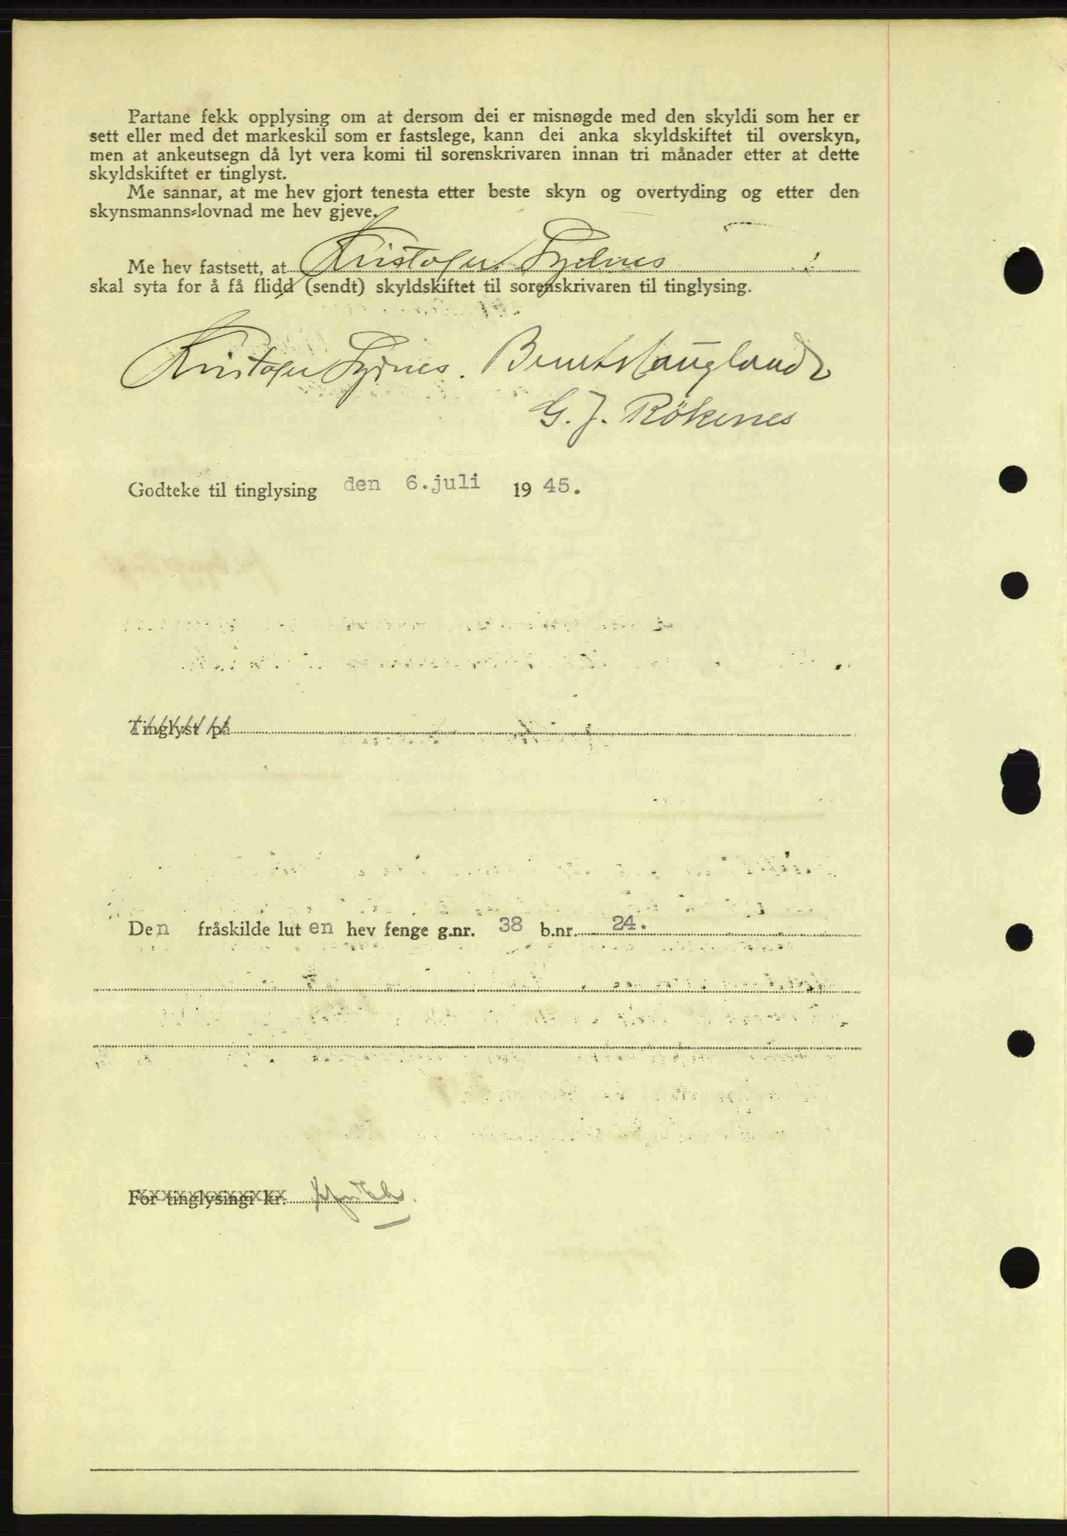 Partane fekk opplysing om at dersom dei er misnøgde med den skyldi som her er
sett eller med det markeskil som er fastslege, kann dei anka skyldskiftet til overskyn,
men at ankeutsegn då lyt vera komi til sorenskrivaren innan tri månader etter at dette
skyldskiftet er tinglyst.
Me sannar, at me hev gjort tenesta etter beste skyn og overtyding og etter den
skynsmanns-lovnad me hev gjeve.
Me hev fastsett, at Kristofer Sydnes
skal syta for å få flidd (sendt) skyldskiftet til sorenskrivaren til tinglysing.
Kristofer Sydnes. Bernt Haugland
G. J. Rökenes
Godteke til tinglysing den 6. juli 1945.
Tinglyst på
Den fråskilde luten hev fenge g.nr. 38 b.nr. 24.
For tinglysingi kr.